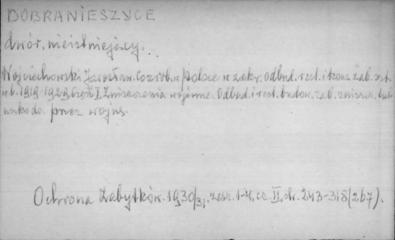 DOBRANIESZYCE
dwór, nieistniejący.
Wojciechowski Jarosław. Co zrob. w Polsce w zakr. odbud. rest. i konz. zab.
w l. 1919-1929. Część I. Zniszczenia wojenne. Odbud. i rest. budow. zab. zniszcz.
przez wojnę.
Ochrona Zabytków. 1930/31. zesz. 1-4, cz. II, str. 243-318 (267).